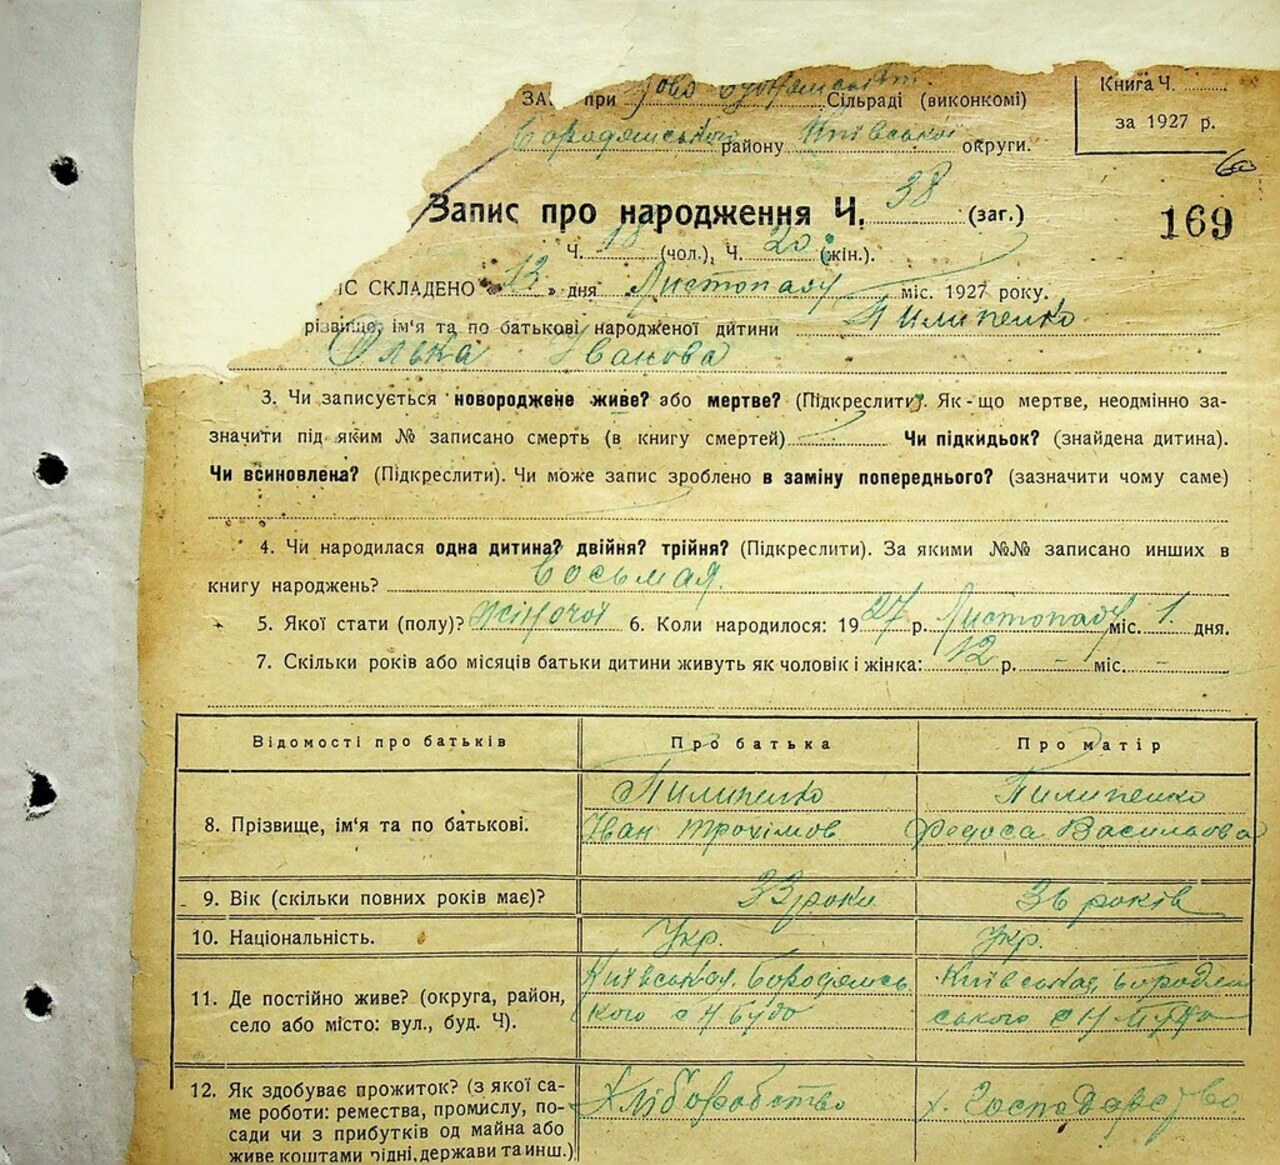 ЗА. при Ново Будянській Сільраді (виконкомі)
Книга Ч.
за 1927 р.
Бородянського району Київської округи.
Запис про народження Ч. 38 (заг.)
169
Ч. 18 (чол.), Ч. 20 (жін.).
ІС СКЛАДЕНО «13» дня Листопаду міс. 1927 року.
різвище, ім'я та по батькові народженої дитини Пилипенко
Олька Іванова
3. Чи записується новороджене живе? або мертве? (Підкреслити). Як-що мертве, неодмінно за-
значити під яким № записано смерть (в книгу смертей) Чи підкидьок? (знайдена дитина).
Чи всиновлена? (Підкреслити). Чи може запис зроблено в заміну попереднього? (зазначити чому саме)
4. Чи народилася одна дитина? двійня? трійня? (Підкреслити). За якими №№ записано инших в
книгу народжень? восьмая.
5. Якої стати (полу)? жіночої 6. Коли народилося: 1927 р. Листопаду міс. 1. дня.
7. Скільки років або місяців батьки дитини живуть як чоловік і жінка: 12 р. - міс. -
Відомості про батьків Про батька Про матір
8. Прізвище, ім'я та по батькові.
Пилипенко Пилипенко
Іван Трохімов Федоса Васильова
9. Вік (скільки повних років має)? 33 роки 36 років
10. Національність. Укр. Укр.
11. Де постійно живе? (округа, район,
село або місто: вул., буд. Ч).
Київська, Бородянсь Київська, Бородян
кого с Н Буда ського с Н Буда
12. Як здобуває прожиток? (з якої са-
ме роботи: ремества, промислу, по-
сади чи з прибутків од майна або
живе коштами рідні, держави та инш.)
Хліборобство х. Господарство